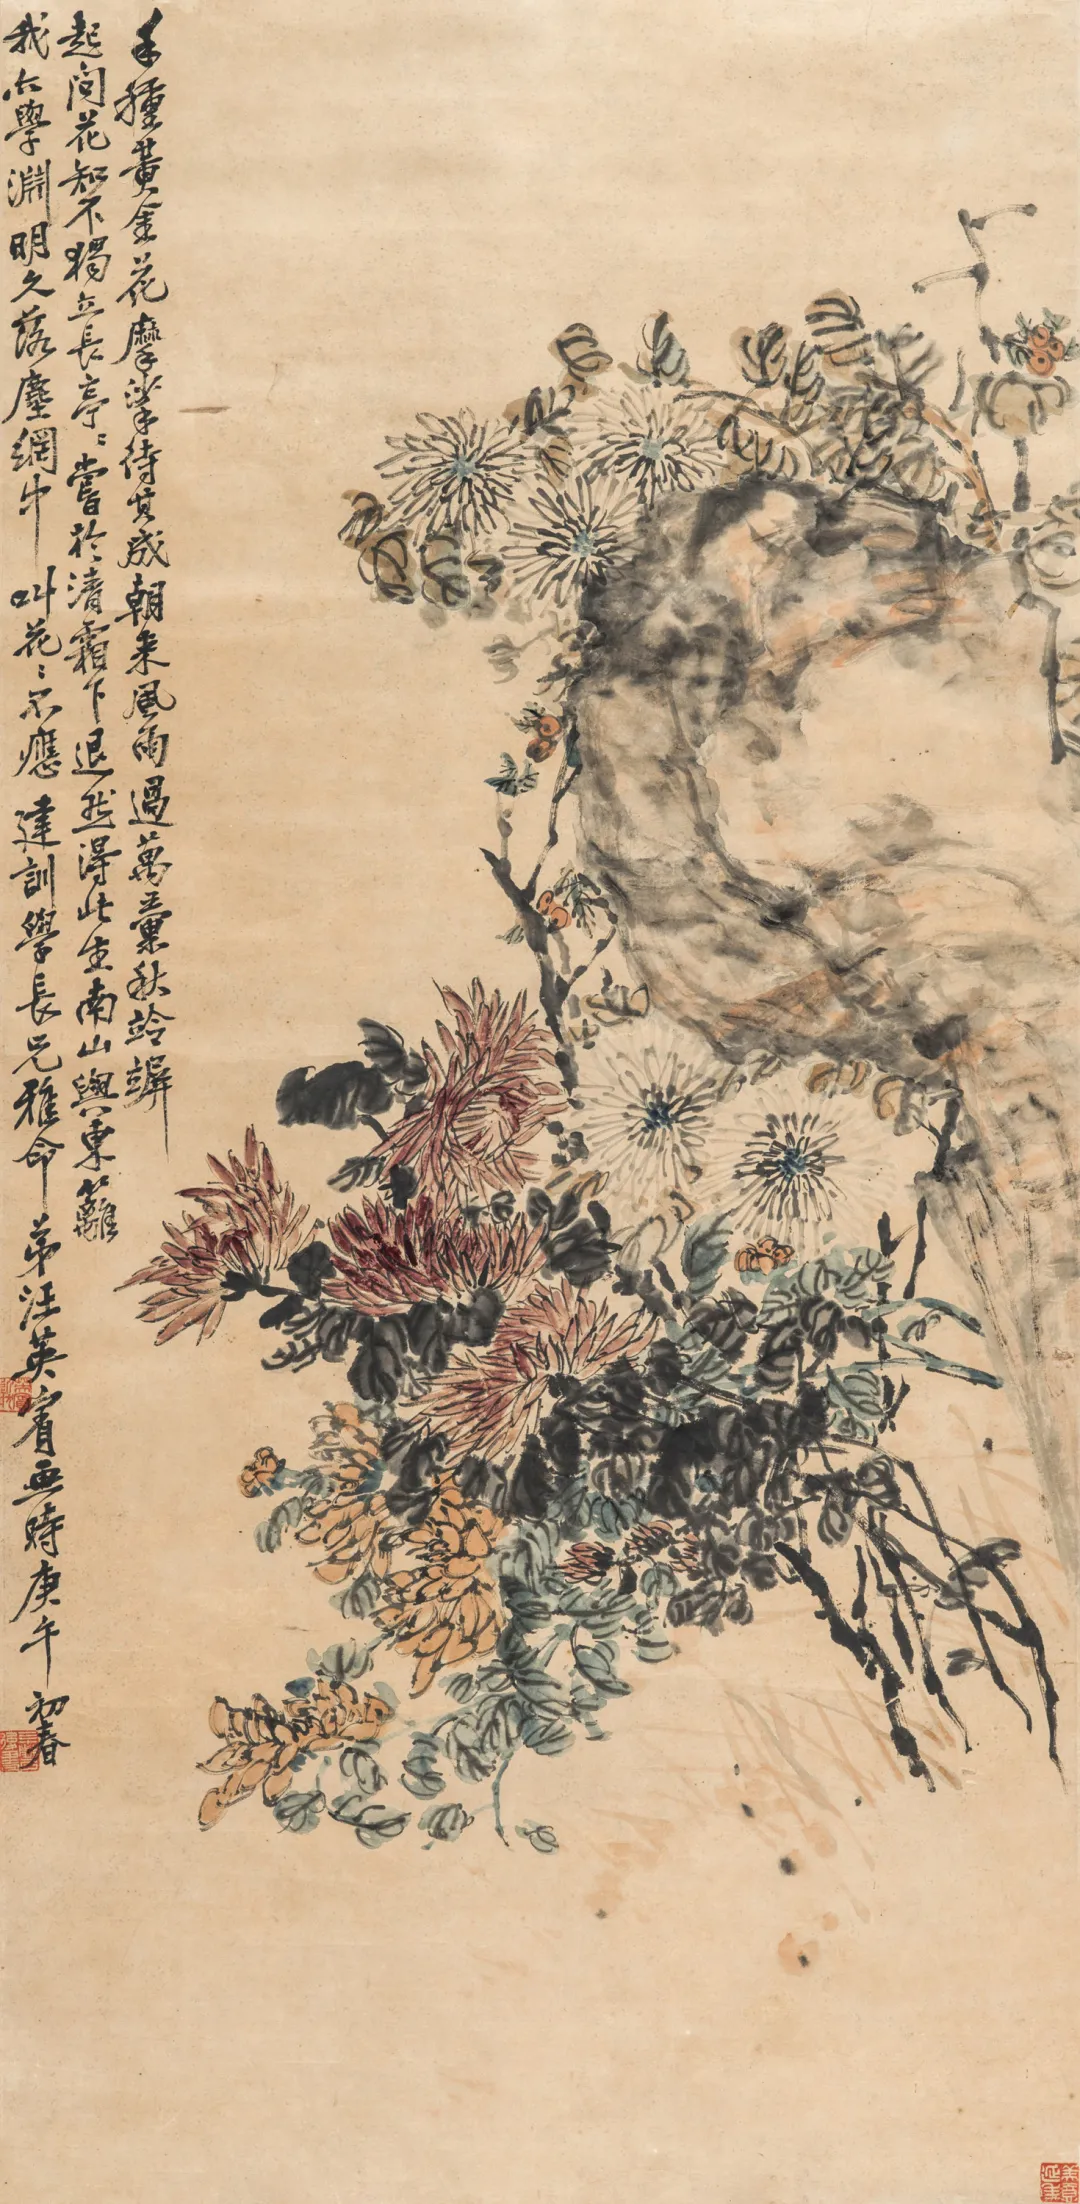 手種黃金花摩挲待其成朝來風雨過萬稟秋竛竮
起問花知不獨立長亭〻嘗於清霜下退然得此生南山與東籬
我亦學淵明久落塵網中叫花〻不應建訓學長兄雅命弟汪英賓並時庚午初春